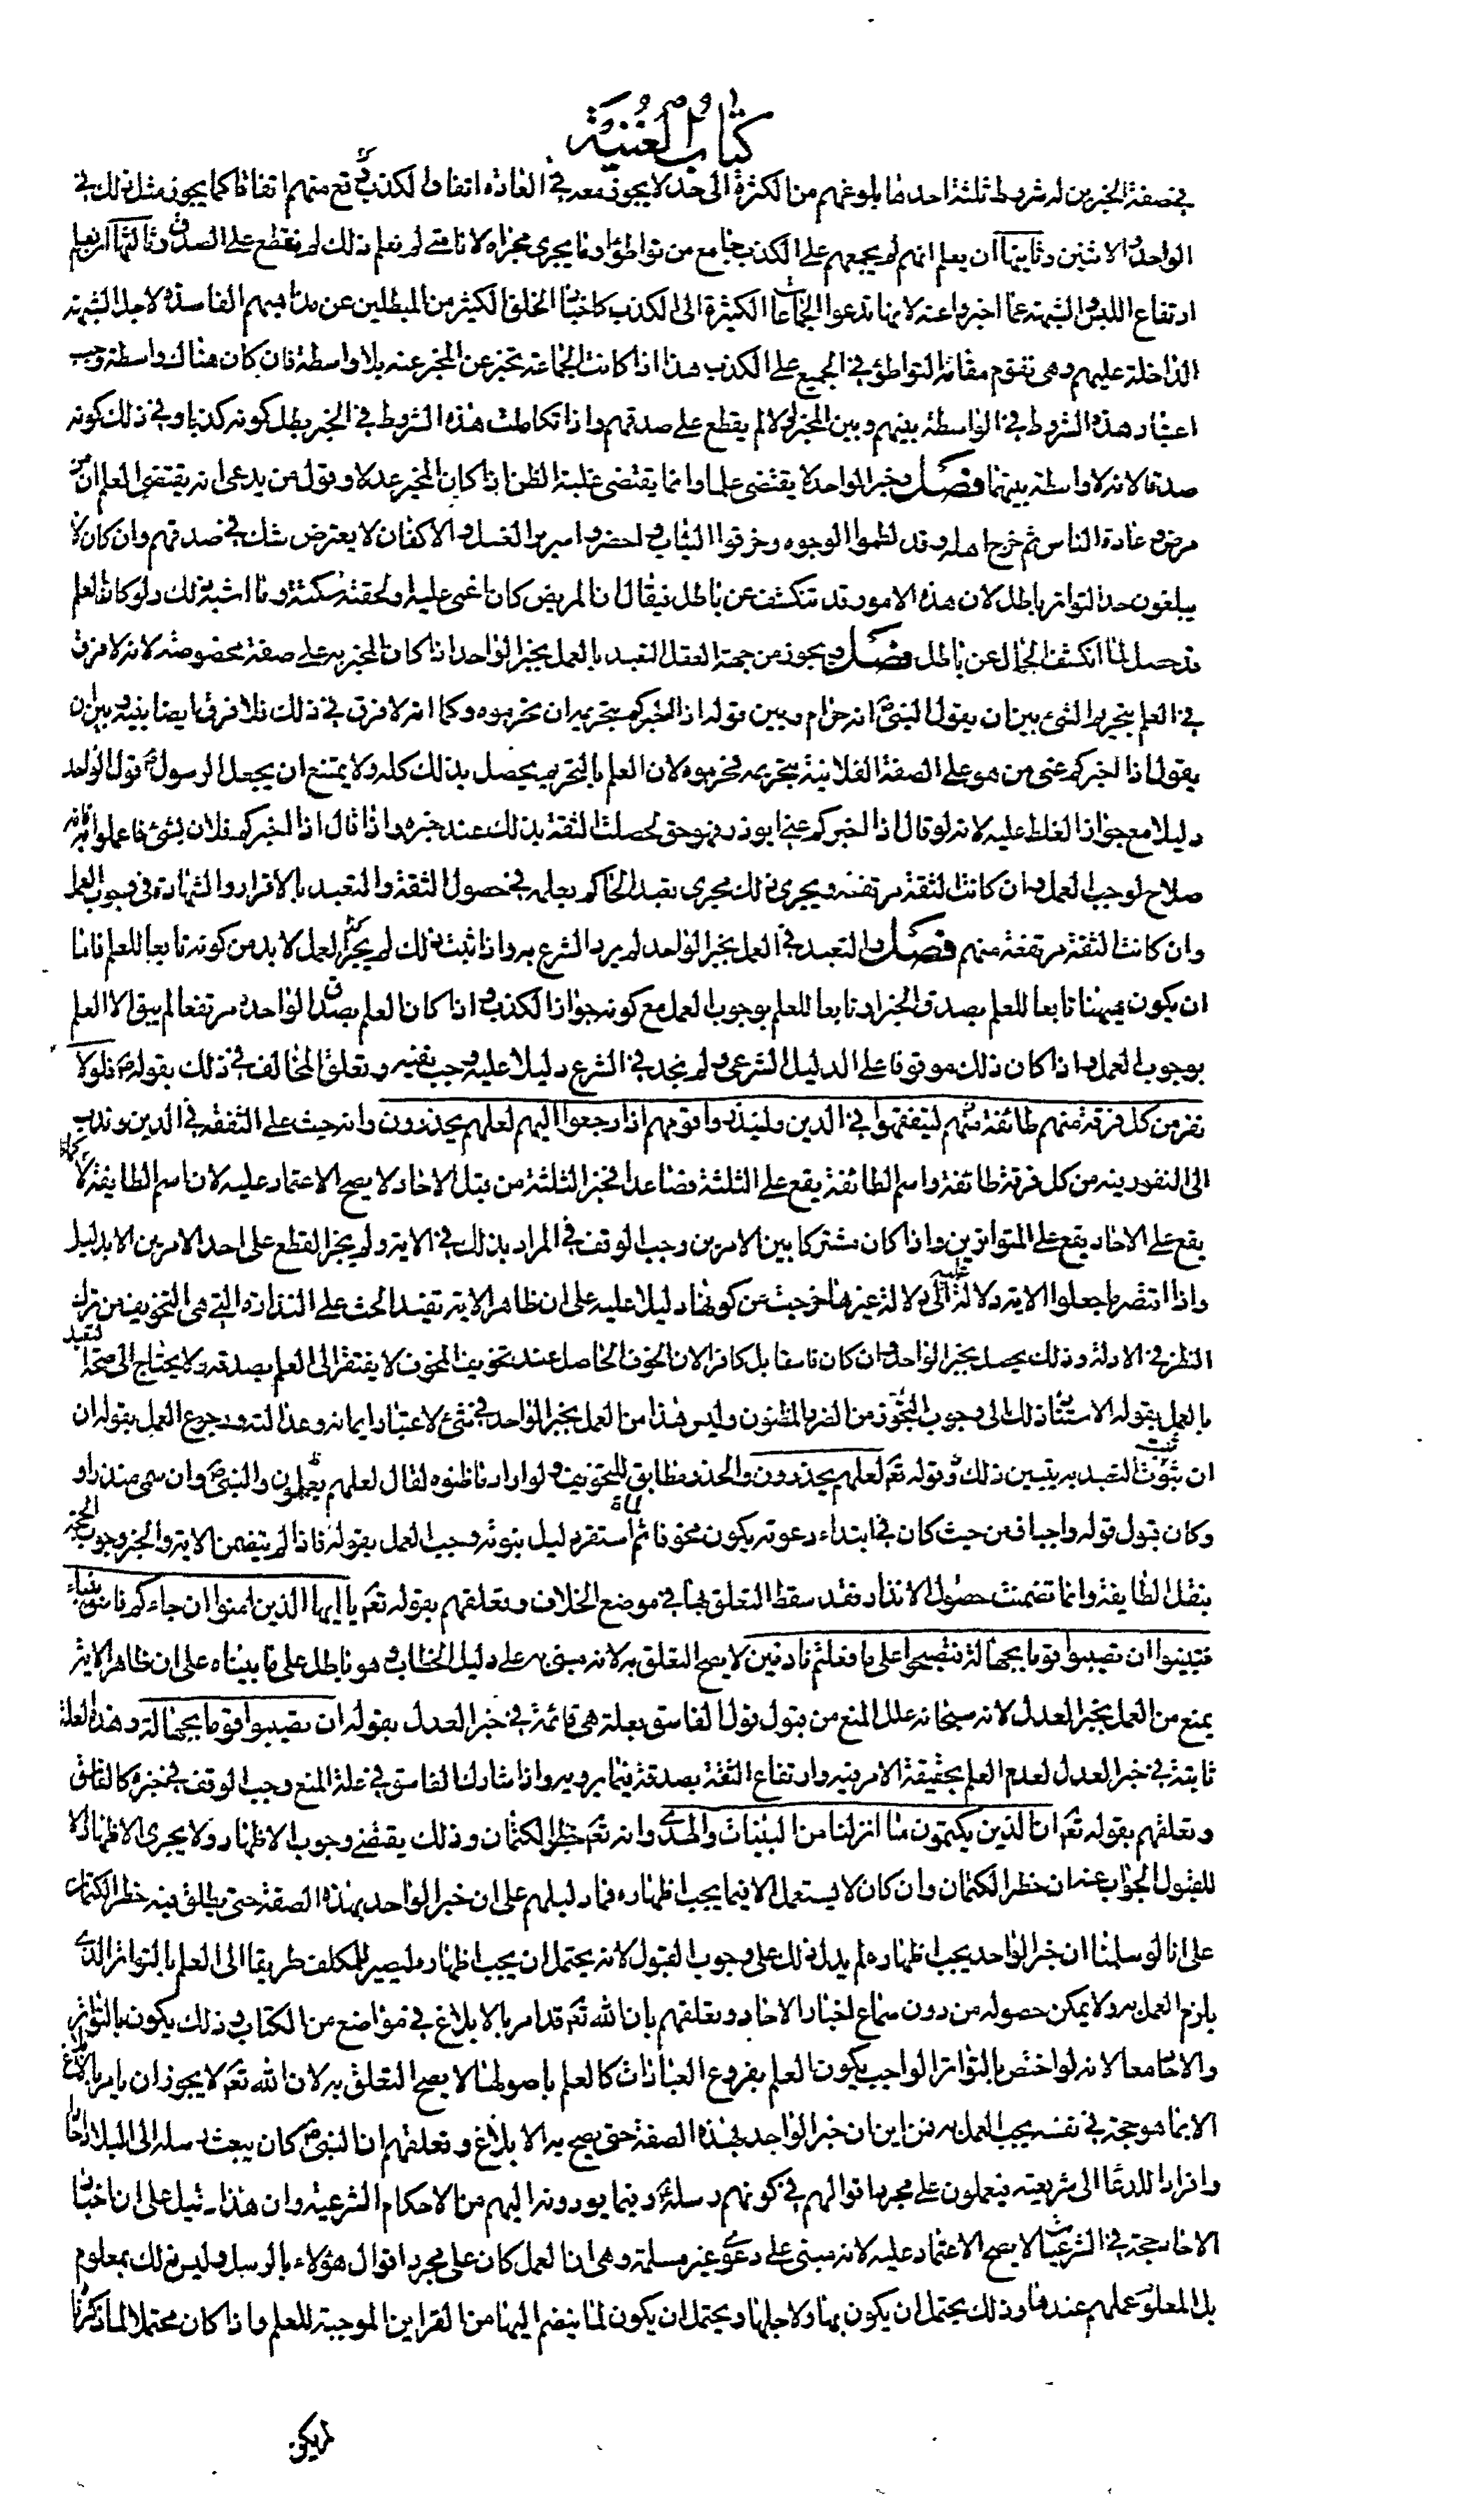 كتاب الغنية
في صفة المخبرين له شروط ثلثة احدها بلوغهم من الكثرة الى حد لا يجوز معه في العادة اتفاق الكذب ان يقع منهم اتفاقا كما يجوز مثل ذلك في
الواحد والاثنين وثانيها ان يعلم انهم لم يجمعهم على الكذب جامع من تواطؤ او ما يجرى مجراه لانا متى لم نعلم ذلك لم نقطع على الصدق وثالثها ان يعلم
ارتفاع اللبس والشبهة عما اخبروا عنه لانها قد تدعوا الجماعات الكثيرة الى الكذب كاخبار الخلق الكثير من المبطلين عن مذاهبهم الفاسدة لاجل الشبهة
الداخلة عليهم وهى تقوم مقام التواطؤ في الجمع على الكذب هذا اذا كانت الجماعة تخبر عن المخبر عنه بلا واسطة فان كان هناك واسطة وجب
اعتبار هذه الشروط في الواسطة بينهم وبين المخبر والا لم يقطع على صدقهم واذا تكاملت هذه الشروط في الخبر بطل كونه كذبا وفي ذلك كونه
صدقا لانه لا واسطة بينهما فصل وخبر الواحد لا يقتضى علما وانما يقتضى غلبة الظن اذا كان المخبر عدلا وقول من يدعى انه يقتضى العلم ان من
مرض وعادة الناس ثم خرج اهله وقد لطموا الوجوه وخرقوا الثياب واحضروا سرير الغسل والاكفان لا يعترض شك في صدقهم وان كان لا
يبلغون حد التواتر باطل لان هذه الامور قد تنكشف عن باطل فيقال ان المريض كان اغمى عليه او لحقته سكتة وما اشبه ذلك ولو كان العلم
قد حصل لما انكشف الحال عن باطل فصل ويجوز من جهة العقل التعبد بالعمل بخبر الواحد اذا كان المخبر به على صفة مخصوصة لانه لا فرق
في العلم بتحريم الشئ بين ان يقول النبى انه حرام وبين قوله اذا اخبركم بتحريمه ان تحرموه وكما انه لا فرق في ذلك فلا فرق ايضا بينه وبين ان
يقول اذا اخبركم عنى من هو على الصفة الفلانية بتحريمه فحرموه لان العلم بالتحريم يحصل بذلك كله ولا يمتنع ان يجعل الرسول قول الواحد
دليلا مع جواز الغلط عليه لانه لو قال اذا اخبركم عنى ابو ذر فهو حق لحصلت الثقة بذلك عند خبره واذا قال اذا اخبركم فلان بشئ فاعملوا به فانه
صلاح لوجب العمل به وان كانت الثقة مرتفعة ويجرى ذلك مجرى تعبد الحاكم بعلمه في حصول الثقة والتعبد بالاقرار والشهادة في وجوب العمل
وان كانت الثقة مرتفعة منهم فصل والتعبد في العمل بخبر الواحد لم يرد الشرع به واذا ثبت ذلك لم يجز العمل لانه لا بد من كونه تابعا للعلم فاما
ان يكون هيهنا تابعا للعلم بصدق الخبر او تابعا للعلم بوجوب العمل مع كونه جواز الكذب واذا كان العلم بصدق الواحد مرتفعا لم يبق الا العلم
بوجوب العمل واذا كان ذلك موقوفا على الدليل الشرعى ولم نجد في الشرع دليلا عليه وجب نفيه وتعلق المخالف في ذلك بقوله تع فلولا
نفر من كل فرقة منهم طائفة ليتفقهوا في الدين ولينذروا قومهم اذا رجعوا اليهم لعلهم يحذرون وانه حث على التفقه في الدين وندب
الى النفور فيه من كل فرقة طائفة واسم الطائفة يقع على الثلثة فصاعدا فخبر الثلثة من قبل الاحاد لا يصح الاعتماد عليه لان اسم الطايفة كما
يقع على الاحاد يقع على المتواترين واذا كان مشتركا بين الامرين وجب الوقف في المراد بذلك في الاية ولم يجز القطع على احد الامرين الا بدليل
واذا افتقروا جعلوا الاية دلالة الى دلالة غيرها خرجت من كونها دليلا عليه على ان ظاهر الاية تفيد الحث على النذارة التى هى التخويف من ترك
النظر في الادلة وذلك يحصل بخبر الواحد وان كان فاسقا بل كافرا لان الخوف الحاصل عند تخويف المخوف لا يفتقر الى العلم بصدقه ولا يحتاج الى صحة التعبد
بالعمل بقوله الاستناد ذلك الى وجوب التحرز من الضرر المظنون وليس هذا من العمل بخبر الواحد في شئ لاعتبار ايمانه وعدالته ورجوع العمل بقوله ان
ان ثبوت التعبد به يتبين ذلك وقوله تع لعلهم يحذرون والحذر مطابق للتخويف ولو اراد ما ظنوه لقال لعلهم يعملون والنبى ص وان سمى منذرا و
وكان قبول قوله واجبا فمن حيث كان في ابتداء دعوته يكون مخوفا ثم لما استقر دليل نبوته وجب العمل بقوله فاذا لم يتضمن الاية والخبر وجوب الحجة
بنقل الطايفة وانما تضمنت حصول الانذار فقد سقط التعلق بها في موضع الخلاف وتعلقهم بقوله تع يا ايها الذين امنوا ان جاءكم فاسق بنباء
فتبينوا ان تصيبوا قوما بجهالة فتصبحوا على ما فعلتم نادمين لا يصح التعلق به لانه مبنى على دليل الخطاب وهو باطل على ما بيناه على ان ظاهر الاية
يمنع من العمل بخبر العدل لانه سبحانه علل المنع من قبول قول الفاسق بعلة هى قائمة في خبر العدل بقوله ان تصيبوا قوما بجهالة وهذه العلة
ثابتة في خبر العدل لعدم العلم بحقيقة الامر فيه وارتفاع الثقة بصدقه فيما يرويه واذا شارك الفاسق في علة المنع وجب الوقف في خبره كالفاسق
وتعلقهم بقوله تع ان الذين يكتمون ما انزلنا من البينات والهدى وانه تع حظر الكتمان وذلك يقتضى وجوب الاظهار ولا يجرى الاظهار الا
للقبول الجواب عنه ان حظر الكتمان وان كان لا يستعمل الا فيما يجب اظهاره فما دليلهم على ان خبر الواحد بهذه الصفة حتى يطلق فيه حظر الكتمان
على انا لو سلمنا ان خبر الواحد يجب اظهاره لم يدل ذلك على وجوب القبول لانه يحتمل ان يجب اظهاره ليصير للمكلف طريقا الى العلم بالتواتر الذى
يلزم العمل به ولا يمكن حصوله من دون سماع اخبار الاحاد وتعلقهم بان الله تع قد امر بالابلاغ في مواضع من الكتاب وذلك يكون بالتواتر
والاحاد معا لانه لو اختص بالتواتر الواجب يكون العلم بفروع العبادات كالعلم باصولها لا يصح التعلق به لان الله تع لا يجوز ان يامر بالابلاغ
الا بما هو حجة في نفسه يجب العمل به فمن اين ان خبر الواحد بهذه الصفة حتى يصح به الابلاغ وتعلقهم ان النبى ص كان يبعث رسله الى البلاد احادا
وافرادا للدعاء الى شريعته فيعملون على مجرد اقوالهم في كونهم رسله وفيما يوردونه اليهم من الاحكام الشرعية وان هذا دليل على ان اخبار
الاحاد حجة في الشرعيات لا يصح الاعتماد عليه لانه مبنى على دعوى غير مسلمة وهى ان العمل كان على مجرد اقوال هؤلاء بالرسل وليس ذلك بمعلوم
بل المعلوم عملهم عندها وذلك يحتمل ان يكون بها ولاجلها ويحتمل ان يكون لما ينضم اليها من القراين الموجبة للعلم واذا كان محتملا لما ذكرنا
لم يكن